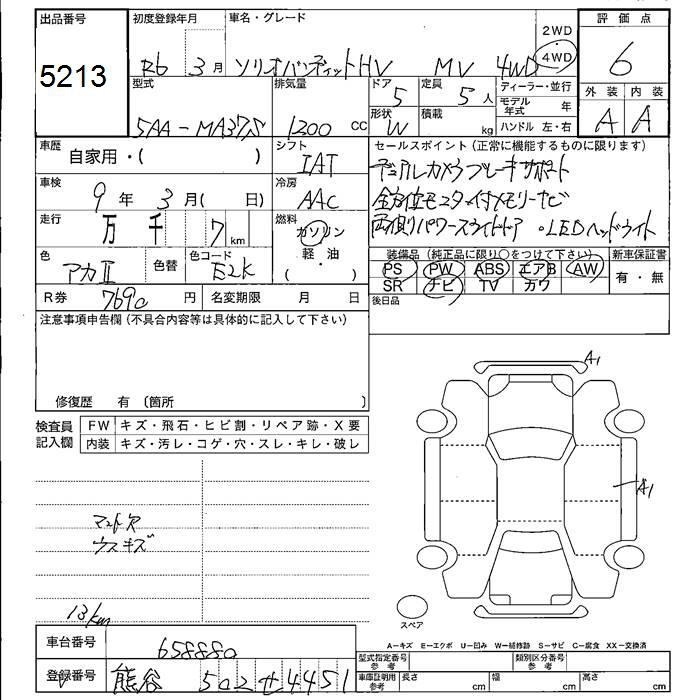 出品番号 初度登録年月 車名・グレード 2WD 4WD 評価点
5213 R6 3月 ソリオバンディットHV MV 4WD 6
型式 排気量 ドア 定員 ディーラー・並行 外装 内装
5AA-MA37S 1200 CC 5 5人 モデル年式 年 A A
形状 積載
W kg ハンドル 左・右
車歴 自家用・( ) シフト IAT セールスポイント(正常に機能するものに限ります)
デュアルカメラブレーキサポート
車検 9年 3月( 日) 冷房 AAC 全方位モニター付メモリーナビ
走行 万 千 7 km 燃料 ガソリン 両側パワースライドドア ・LEDヘッドライト
軽・油
・
( )
色 アカⅡ 色替 色コード E2K 装備品(純正品に限り○をつけて下さい) 新車保証書
PS PW ABS エアB AW 有・無
SR ナビ TV カワ
R券 7690円 名変期限 月 日 後日品
注意事項申告欄(不具合内容等は具体的に記入して下さい)
修復歴 有 〔箇所 〕
A1
検査員記入欄 FW キズ・飛石・ヒビ割・リペア跡・X要
内装 キズ・汚レ・コゲ・穴・スレ・キレ・破レ
A1
マット穴
ウスキズ
13km
スペア
A-キズ E-エクボ U-凹み W-補修跡 S-サビ C-腐食 XX-交換済
車台番号 658880
型式指定番号 参考 類別区分番号 参考
登録番号 熊谷 502 せ 4451
車庫証明用 参考 長さ cm 幅 cm 高さ cm